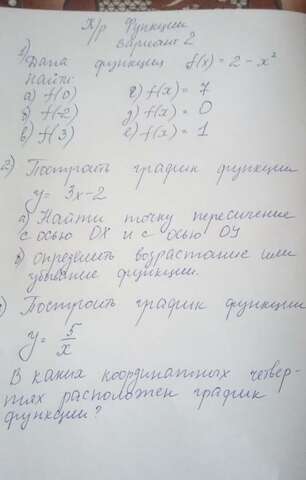 К/р Функции
Вариант 2
1) Дана функция f(x) = 2 - x²
Найти:
а) f(0) г) f(x) = 7
б) f(-2) д) f(x) = 0
в) f(3) е) f(x) = 1
2) Построить график функции
y = 3x-2
а) Найти точку пересичение
с осью OX и с осью OY
б) определить возрастание или
убывание функции.
Построить график функции
y = 5/x
В каких координатных четвер-
тях расположен график
функции?